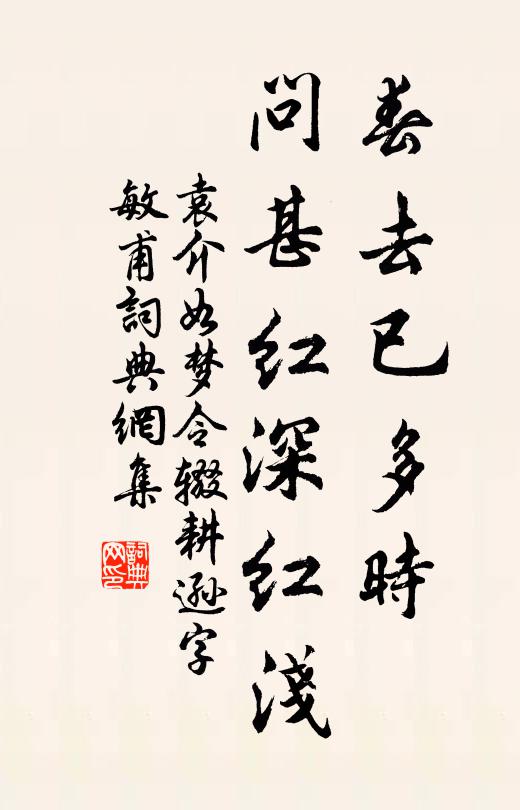 春去已多時
問甚紅深紅淺
袁介如梦令辍耕遜字
敏甫詞典網集
詞典网印